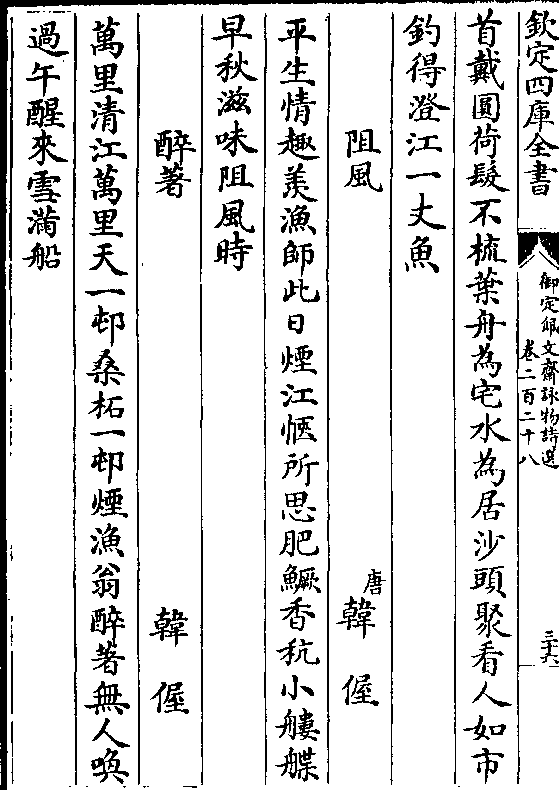 欽定四庫全書
御定佩文齋詠物詩選
卷二百二十八
三十六
首戴圓荷髮不梳葉舟為宅水為居沙頭聚看人如市
釣得澄江一丈魚
阻風
唐
韓偓
平生情趣羡漁師此日煙江愜所思肥鱖香秔小艛艓
早秋滋味阻風時
醉著
韓偓
萬里清江萬里天一邨桑柘一邨煙漁翁醉著無人喚
過午醒來雪滿船